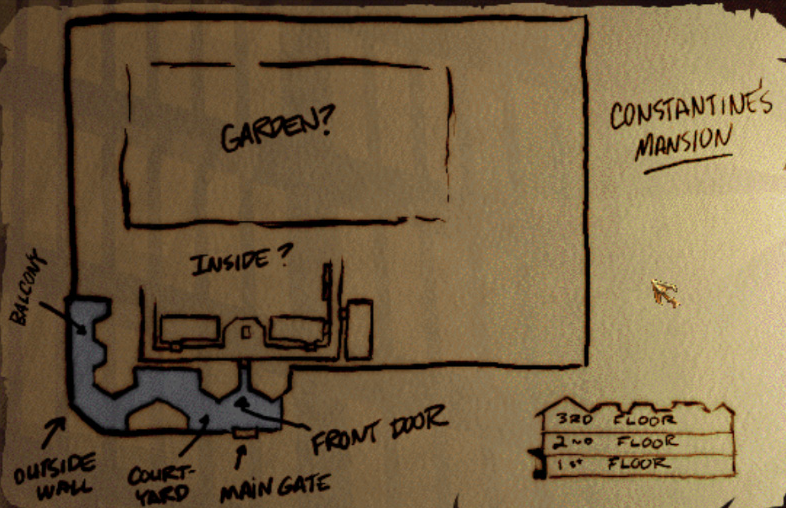 CONSTANTINE'S
MANSION
GARDEN?
INSIDE?
BALCONY
FRONT DOOR
OUTSIDE
WALL
COURT-
YARD
MAIN GATE
3RD FLOOR
2ND FLOOR
1ST FLOOR